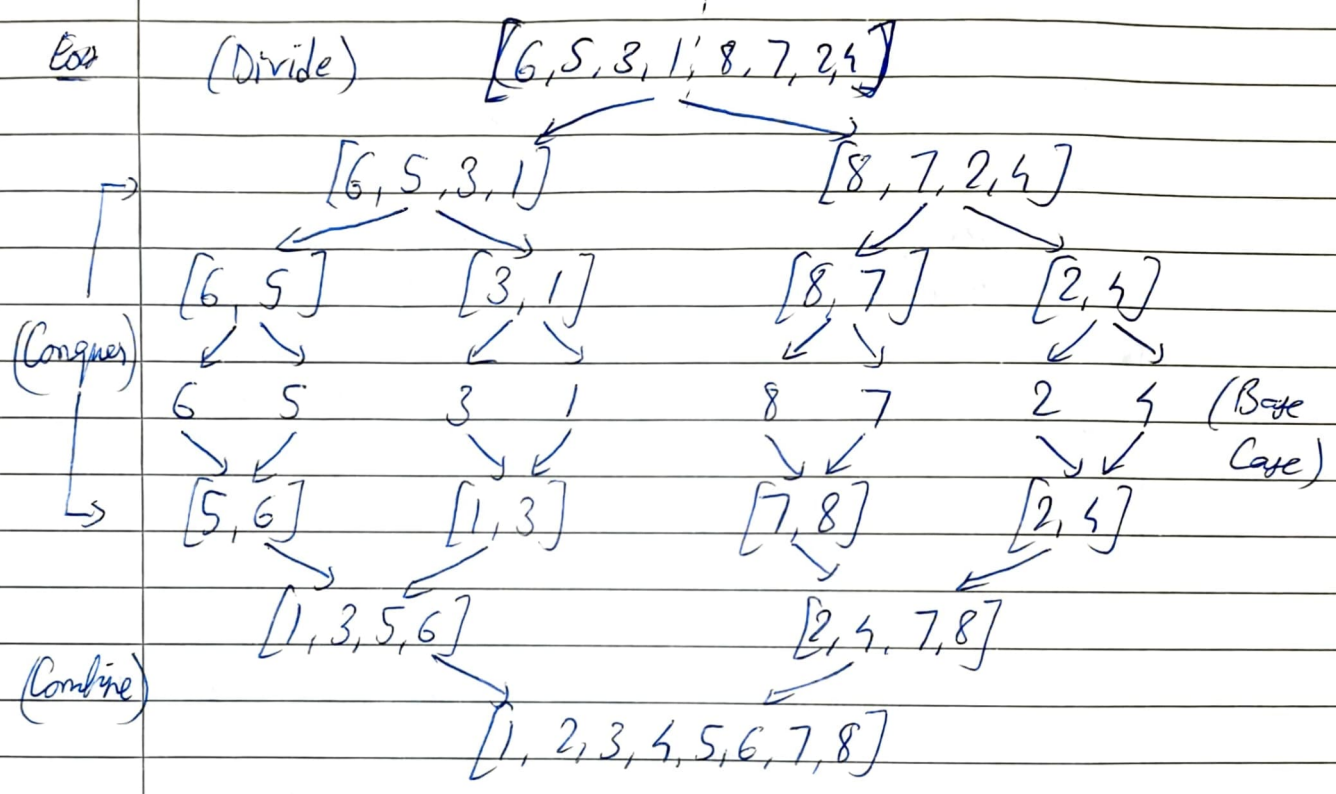 Eg (Divide) [6, 5, 3, 1, 8, 7, 2, 4]
[6, 5, 3, 1] [8, 7, 2, 4]
[6, 5] [3, 1] [8, 7] [2, 4]
(Conquer)
6 5 3 1 8 7 2 4 (Base
Case)
[5, 6] [1, 3] [7, 8] [2, 4]
[1, 3, 5, 6] [2, 4, 7, 8]
(Combine)
[1, 2, 3, 4, 5, 6, 7, 8]